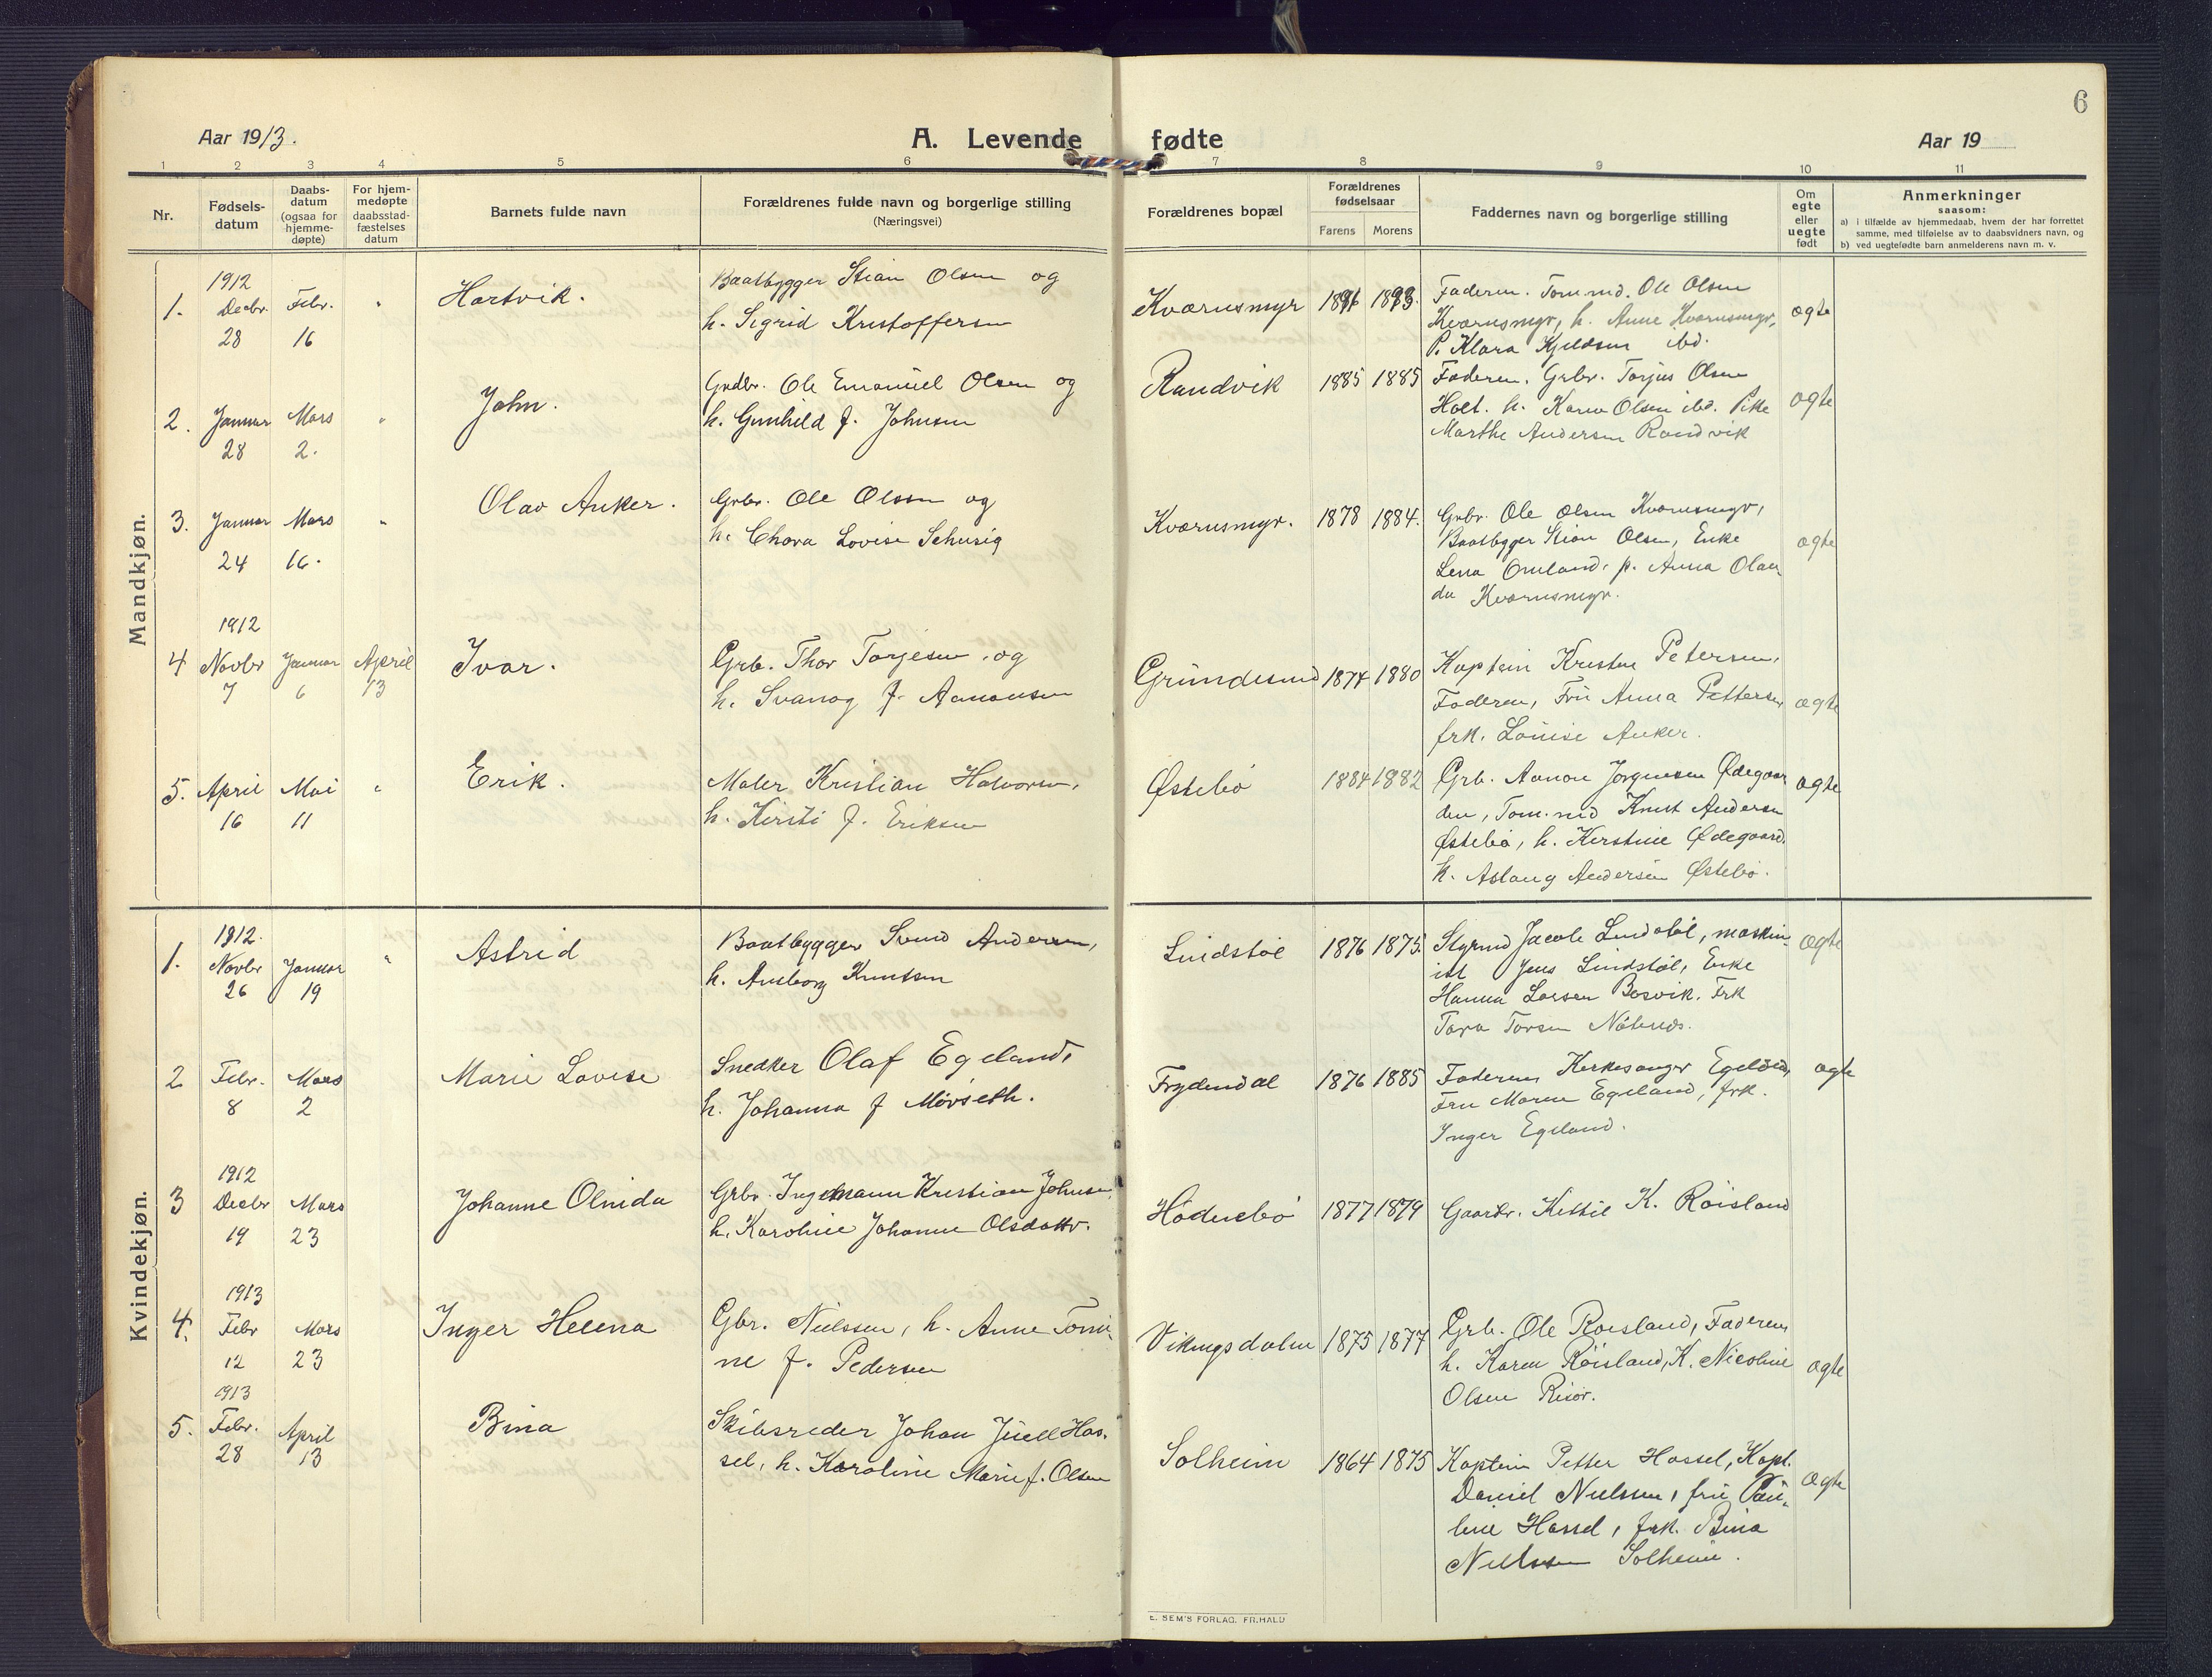 6
Aar 1913.
A. Levende fødte
Aar 19
1 2 3 4 5 6 7 8 9 10 11
Nr.
Fødsels-
datum
Daabs-
datum
(ogsaa for
hjemme-
døpte)
For hjem-
medøpte
daabsstad-
fæstelses
datum
Barnets fulde navn
Forældrenes fulde navn og borgerlige stilling
(Næringsvei)
Forældrenes bopæl
Forældrenes
fødselsaar
Farens Morens
Faddernes navn og borgerlige stilling
Om
egte
eller
uegte
født
Anmerkninger
saasom:
a) i tilfælde av hjemmedaab, hvem der har forrettet
samme, med tilføielse av to daabsvidners navn, og
b) ved uegtefødte barn anmelderens navn m. v.
Mandkjøn.
1.
1912
Decbr.
28
Febr.
16
"
Hartvik.
Baatbygger Stian Olsen og
h. Sigrid Kristoffersen
Kværnsmyr
Faderen. Tømmd. Ole Olsen
Kværnsmyr, h. Anne Kværnsmyr,
P. Klara Kjeldsen ibd.
ægte
2.
Januar
28
Mars
2.
"
John.
Grdbr. Ole Emanuel Olsen og
h. Gunhild f. Johnsen
Randvik
1885 1885
Faderen. Grbr. Torjus Olsen
Holt. h. Karen Olsen ibd. Pike
Marthe Andersen Randvik
ægte
3.
Januar
24
Mars
16.
"
Olav Anker.
Grbr. Ole Olsen og
h. Lovise Schusig
Kværnsmyr.
1878 1884.
Grbr. Ole Olsen Kværnsmyr,
Baatbygger Stian Olsen, Enke
Lena Omland, p. Anna Olan
da Kværnsmyr.
ægte
4
1912
Novbr
7
Januar
6
April
13
Ivar.
Grb. Thor Torjesen, og
h. Svanaug f. Aanonsen
Grundesund
1874 1880
Kaptein Kristen Petersen,
Faderen, Fru Anna Pettersen
frk. Louise Anker.
ægte
5.
April
16
Mai
11
"
Erik.
Maler Kristian Halvorsen,
h. Kirsti f. Eriksen
Østebø
1884 1882
Grb. Aanon Jørgensen Ødegaar
den, Tøm.md Knut Andersen
Østebø, h. Kerstine Ødegaard.
h. Aslaug Andersen Østebø.
ægte
Kvindekjøn.
1.
1912.
Novbr
26
Januar
19
"
Astrid
Baatbygger Svend Andersen,
h. Ansborg Knutsen
Lindstøl
1876 1875.
Styrmd Jacob Lindstøl, maskin-
ist Jens Lindstøl, Enke
Hanna Larsen Bosvik. Frk
Tora Torsen
ægte
2
Febr.
8
Mars
2
Marie Lovise
Snedker Olaf Egeland,
h. Johanna f Mørseth.
Frydendal
1876 1885
Faderen, Kirkesanger Egeland,
Fru Maren Egeland, frk.
Inger Egeland.
ægte
3
1912
Decbr
19
Mars
23
Johanne Olnida
Grbr. Ingemann Kristian Johnsen,
h. Karoline Johanne Olsdattr.
Hødnebø
1877 1879
Gaardbr. Kittil K. Røisland
4.
1913
Febr
12
Mars
23
Inger Helena
Gbr. Nielssen, h. Anne Tomi-
ne f. Pedersen
Vikingsdalen
1875 1877
Grb. Ole Røisland, Faderen,
h. Karen Røisland, K. Nicoline
Olsen Risør.
ægte
5.
1913
Febr.
28
April
13
Bina
Skibsreder Johan Juell Has-
sel, h. Karoline Marie f. Olsen
Solheim
1864 1875
Kaptein Petter Hassel, Kapt.
Daniel Nielssen, fru Pau-
line Hassel, frk. Bina
Nielssen Solheim.
ægte
E. SEM'S FORLAG. FR.HALD